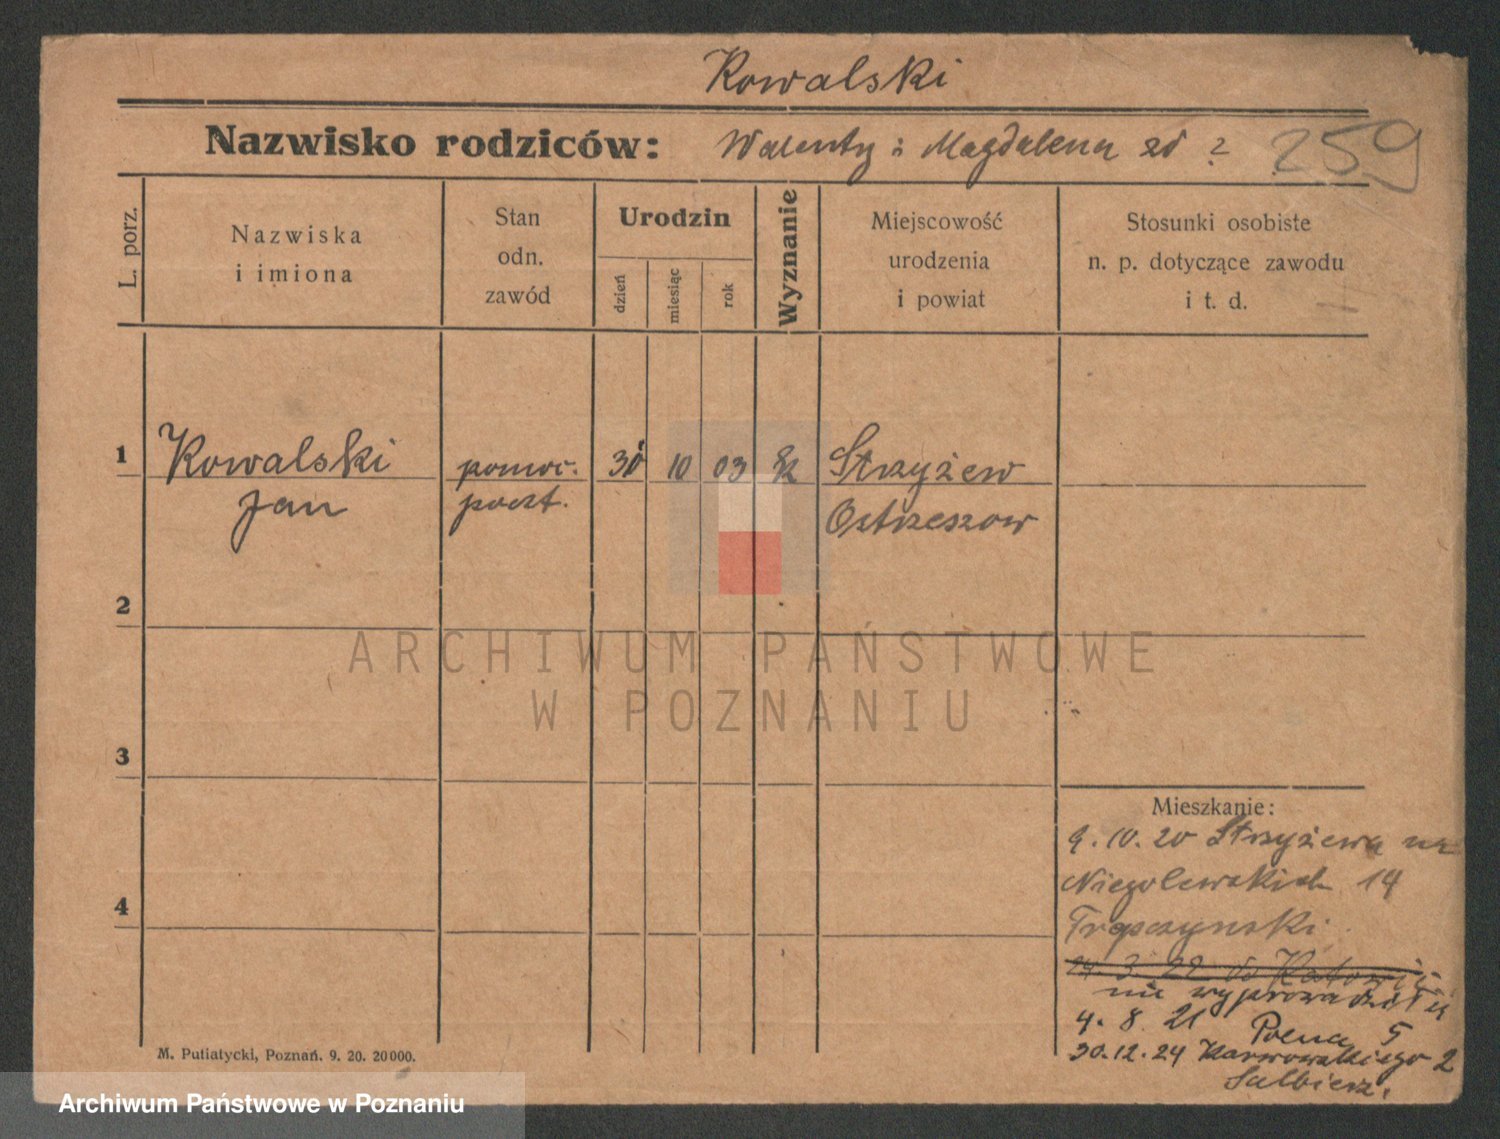 Kowalski
Nazwisko rodziców: Walenty i Magdalena zd ? 259
L. porz.
Nazwiska
i imiona
Stan
odn.
zawód
Urodzin
dzień
miesiąc
rok
Wyznanie
Miejscowość
urodzenia
i powiat
Stosunki osobiste
n. p. dotyczące zawodu
i t. d.
1 Kowalski pomoc. 30 10 03 Strzyżew
Jan poczt. Ostrzeszow
2
ARCHIWUM PAŃSTWOWE
W POZNANIU
3
Mieszkanie:
9.10.20 Strzyżewa na
Niegolewskich 14
Trąpczynski
24.3.22 do Katowic
nie wyprowadził się
4.8.21 Polna 5
30.12.24 Karwowskiego 2
4
M. Putiatycki, Poznań. 9. 20. 20000.
Archiwum Państwowe w Poznaniu